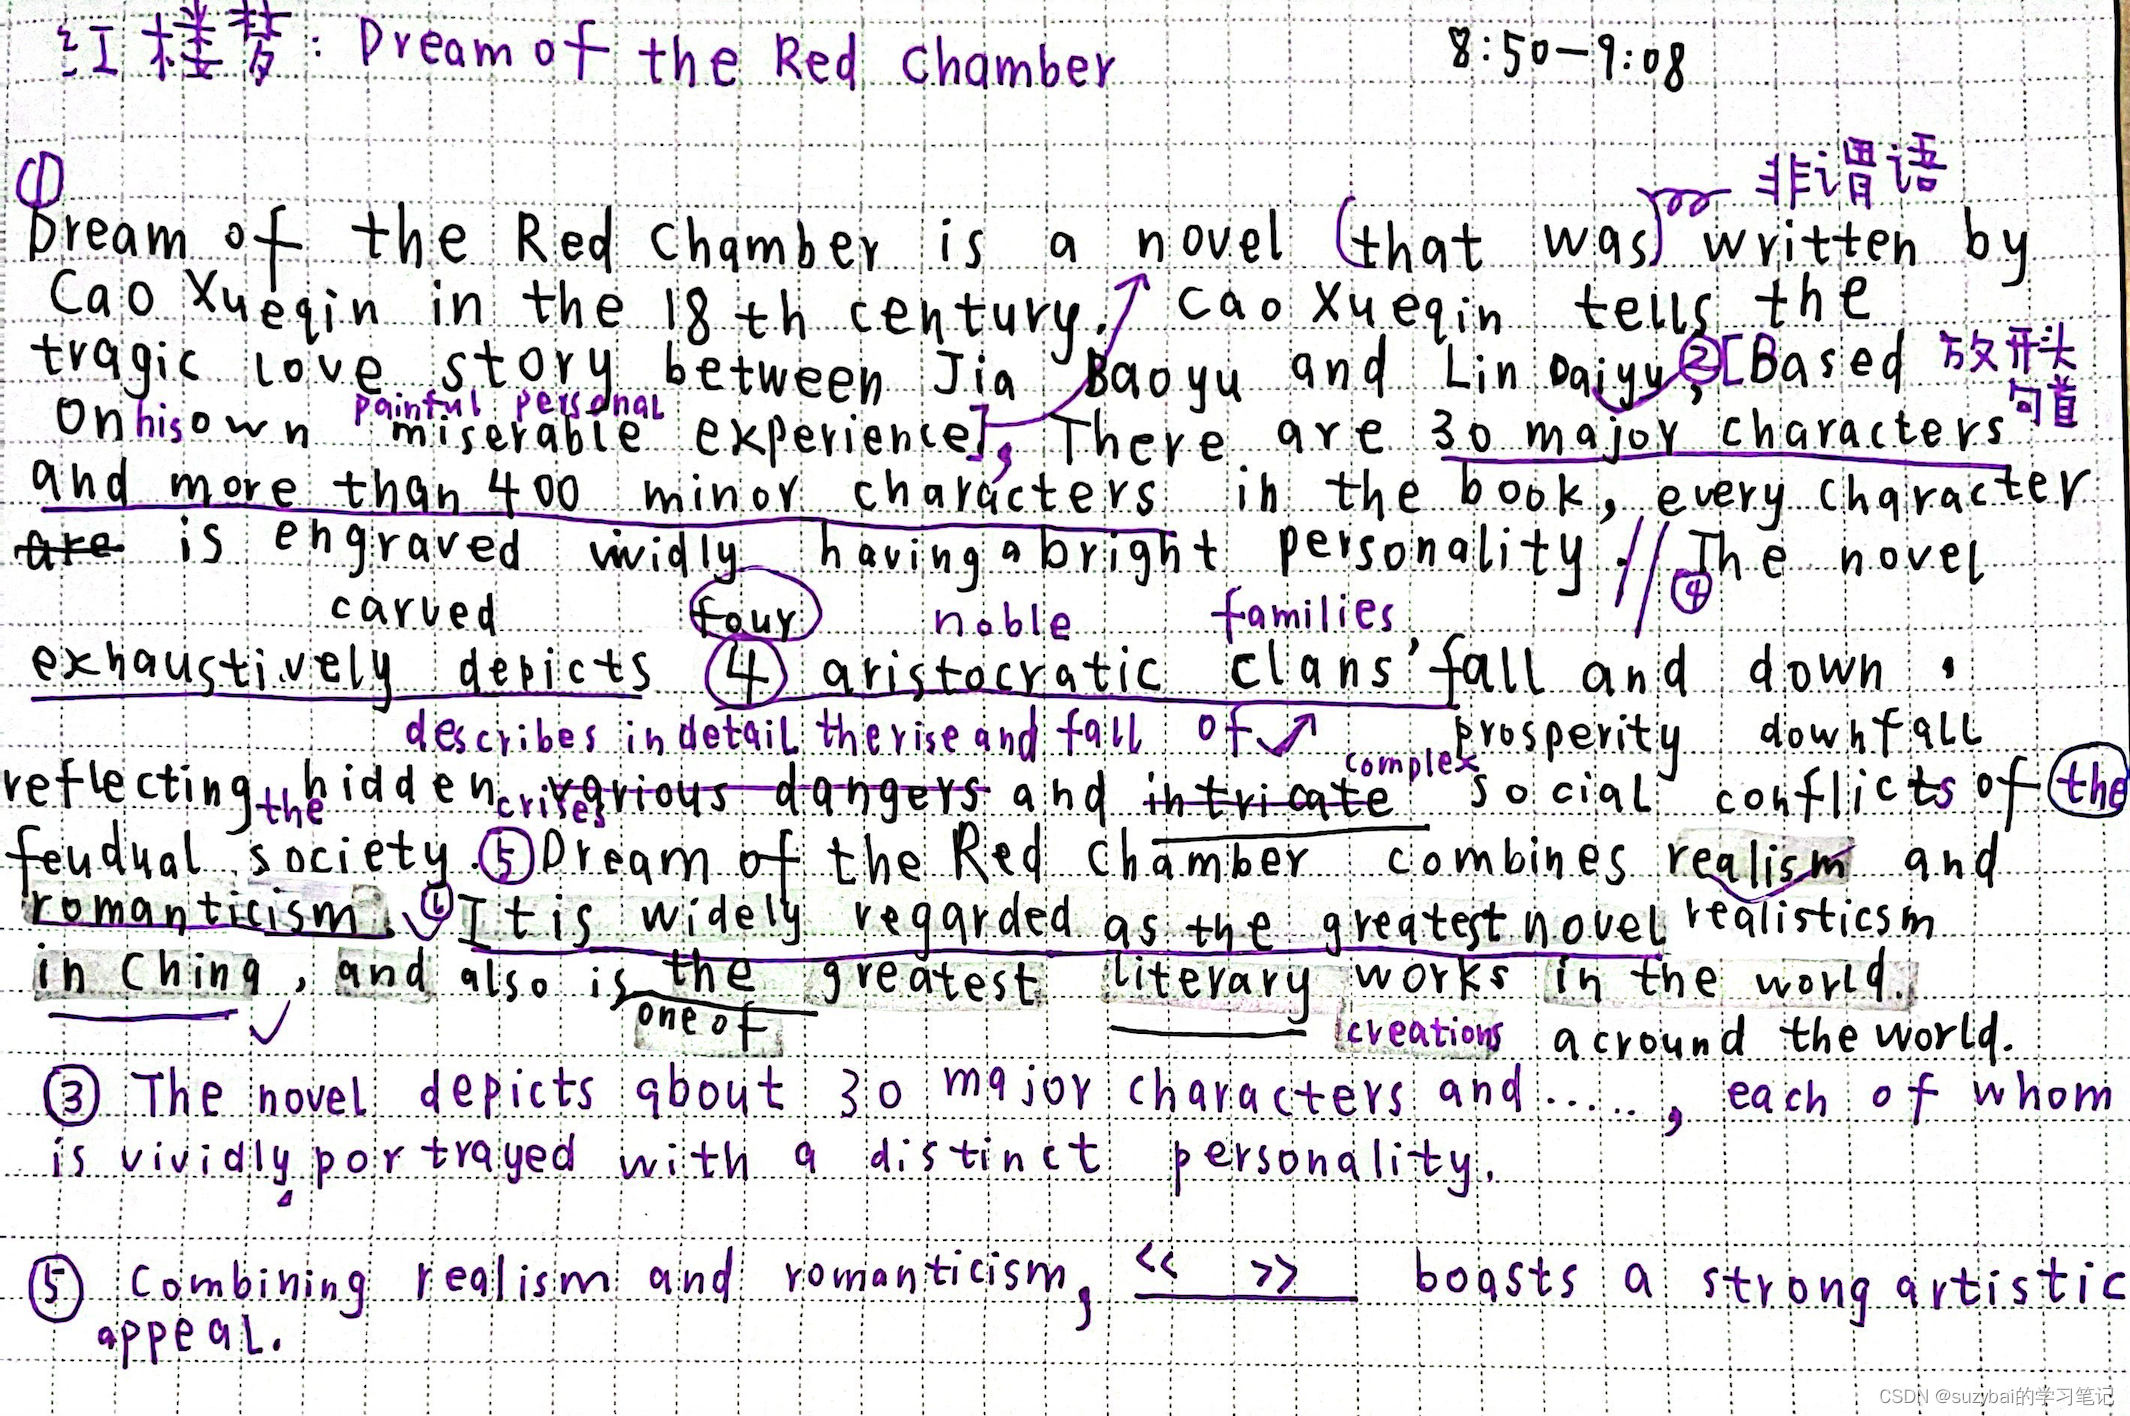 红楼梦: Dream of the Red Chamber 8:50-9:08
① 非谓语
Dream of the Red Chamber is a novel (that was) written by
Cao Xueqin in the 18 th century. Cao Xueqin tells the
tragic love story between Jia Baoyu and Lin Daiyu, ②[Based 放开头
句首
painful personal
On his own miserable experience], There are 30 major characters
and more than 400 minor characters in the book, every character
are is engraved vividly having a bright personality. // ④ The novel
carved four noble families
exhaustively depicts 4 aristocratic clans' fall and down,
describes in detail the rise and fall of prosperity downfall
complex
reflecting the hidden various dangers and intricate social conflicts of the
crises
feudual society. ⑤ Dream of the Red Chamber combines realism and
romanticism. ⑥ It is widely regarded as the greatest novel realisticsm
in China, and also is the greatest literary works in the world.
one of creations acround the world.
③ The novel depicts about 30 major characters and ....., each of whom
is vividly portrayed with a distinct personality.
⑤ Combining realism and romanticism, << >> boasts a strong artistic
appeal.
CSDN @suzybai的学习笔记